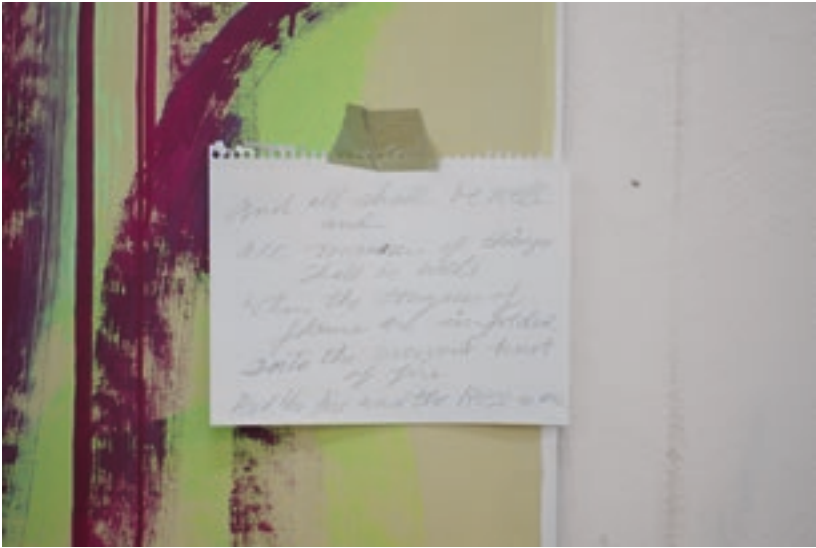 And all shall be well
and
All manner of things
shall be well
When the tongues of
flame are infolded
Into the crowned knot
of fire
And the fire and the Rose are